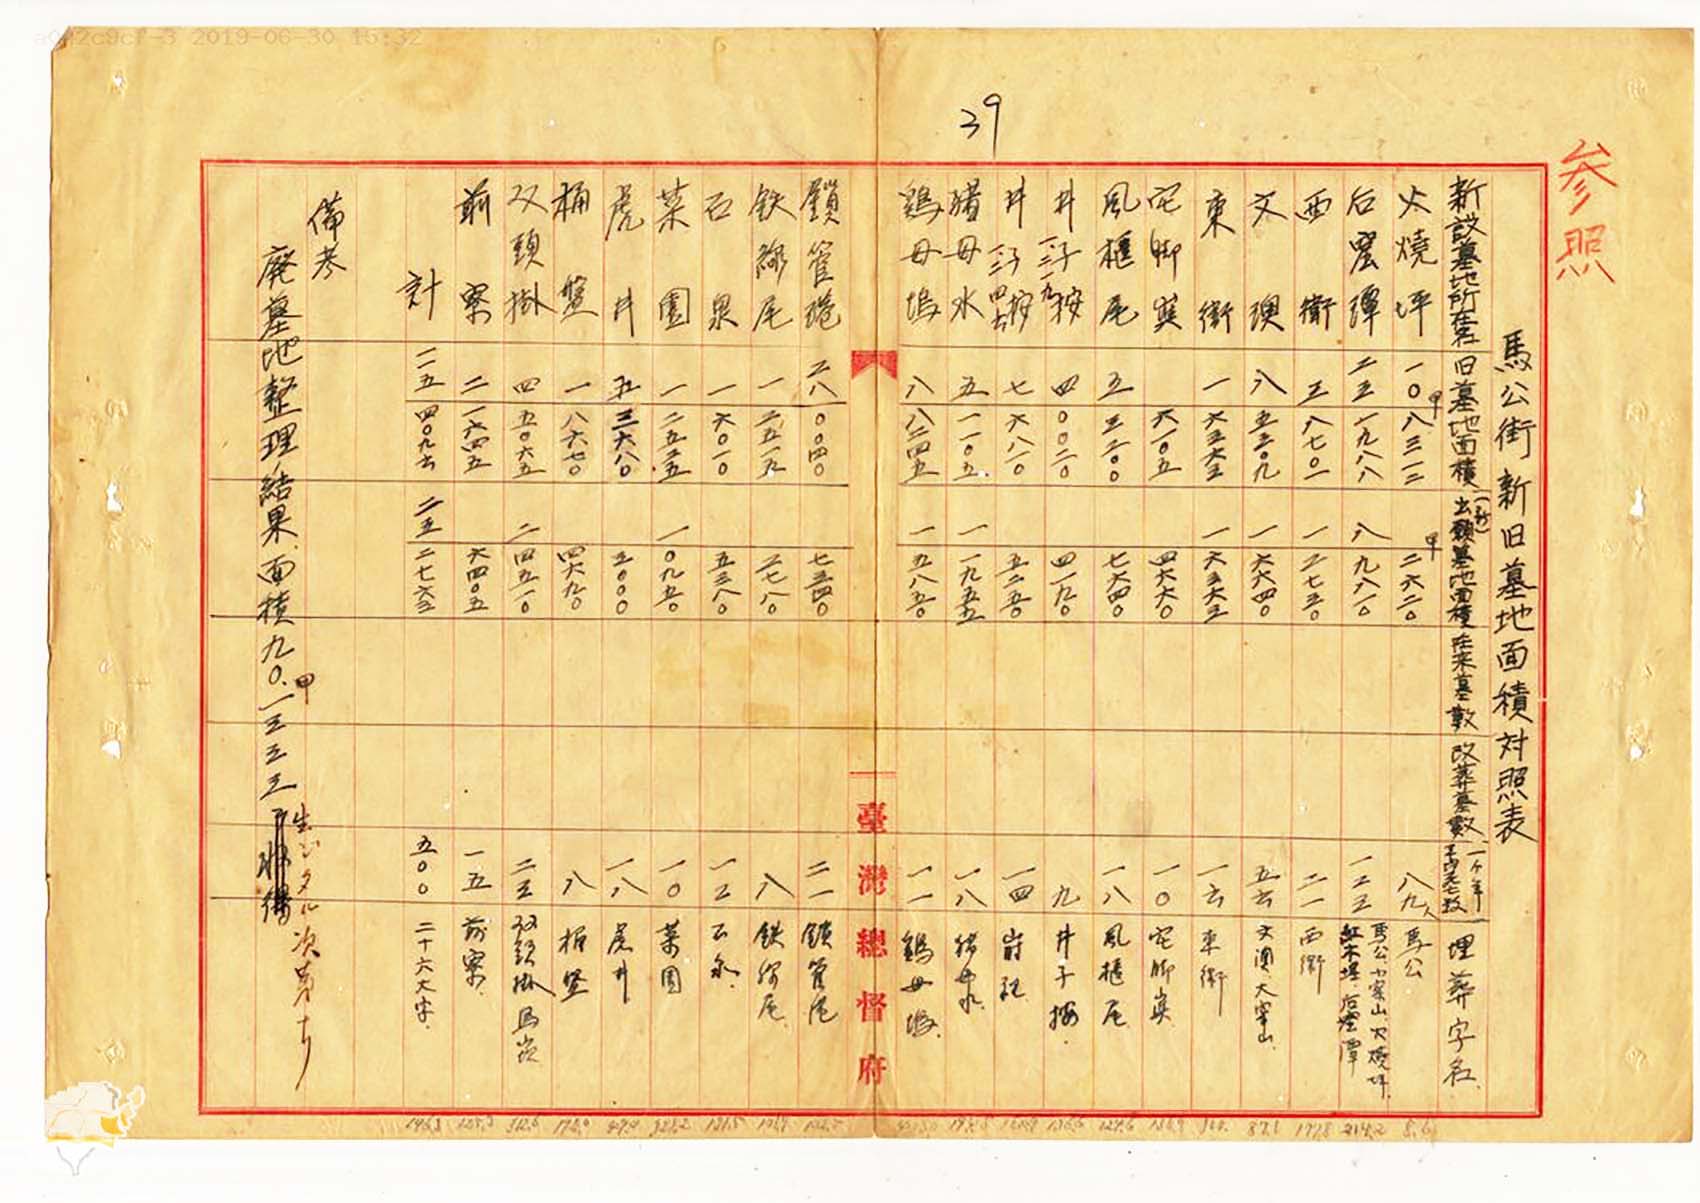 a042c9cf-3 2019-06-30 15:32
39
参照
馬公街新旧墓地面積対照表
新設墓地所在名 旧墓地面積 出願墓地面積 在来墓数 改葬墓数 一个年 埋葬字名
火燒坪 一〇甲八三一二 甲二六二〇 八九人 馬公
后窟潭 二三一九八八 八九八一〇 一二三 馬公 火燒坪 紅木埕 后窟潭
西衛 三八七〇一 一二七三〇 二一 西衛
文澳 八五三〇九 一六六四〇 文澳 大案山
東衛 一六三六三 一六三六三 東衛
宅脚嶼 六一〇五 四六六〇 一〇 宅脚嶼
風櫃尾 五三二〇〇 七六四〇 一八 風櫃尾
井子按 四〇〇二〇 四一九〇 九 井子按
井子按 七六八一〇 五二五〇 一四 嵵裡
猪母水 五一一〇五 一一九五五 一八 猪母水
鷄母塢 八八二四五 一五八五〇 一一 鷄母塢
鎖管港 二八〇〇四〇 七三四〇 二一 鎖管港
鉄線尾 一二五一九 二七八〇 八 鉄線尾
石泉 一六〇一〇 五三八〇 一二 石泉
菜園 一二五三五 一〇九五〇 一〇 菜園
虎井 五三六八〇 三〇〇〇 一八 虎井
桶盤 一八六七〇 四六九〇 八 桶盤
双頭掛 四五〇六五 二四五一〇 二三 双頭掛
前寮 二一六四五 六四〇五 一五 前寮
計 一一五四〇九六 二五二七六三 五〇〇 二十六大字
備考
廃墓地整理結果面積九〇甲一三三三
生シタル次第ナリ
臺灣總督府